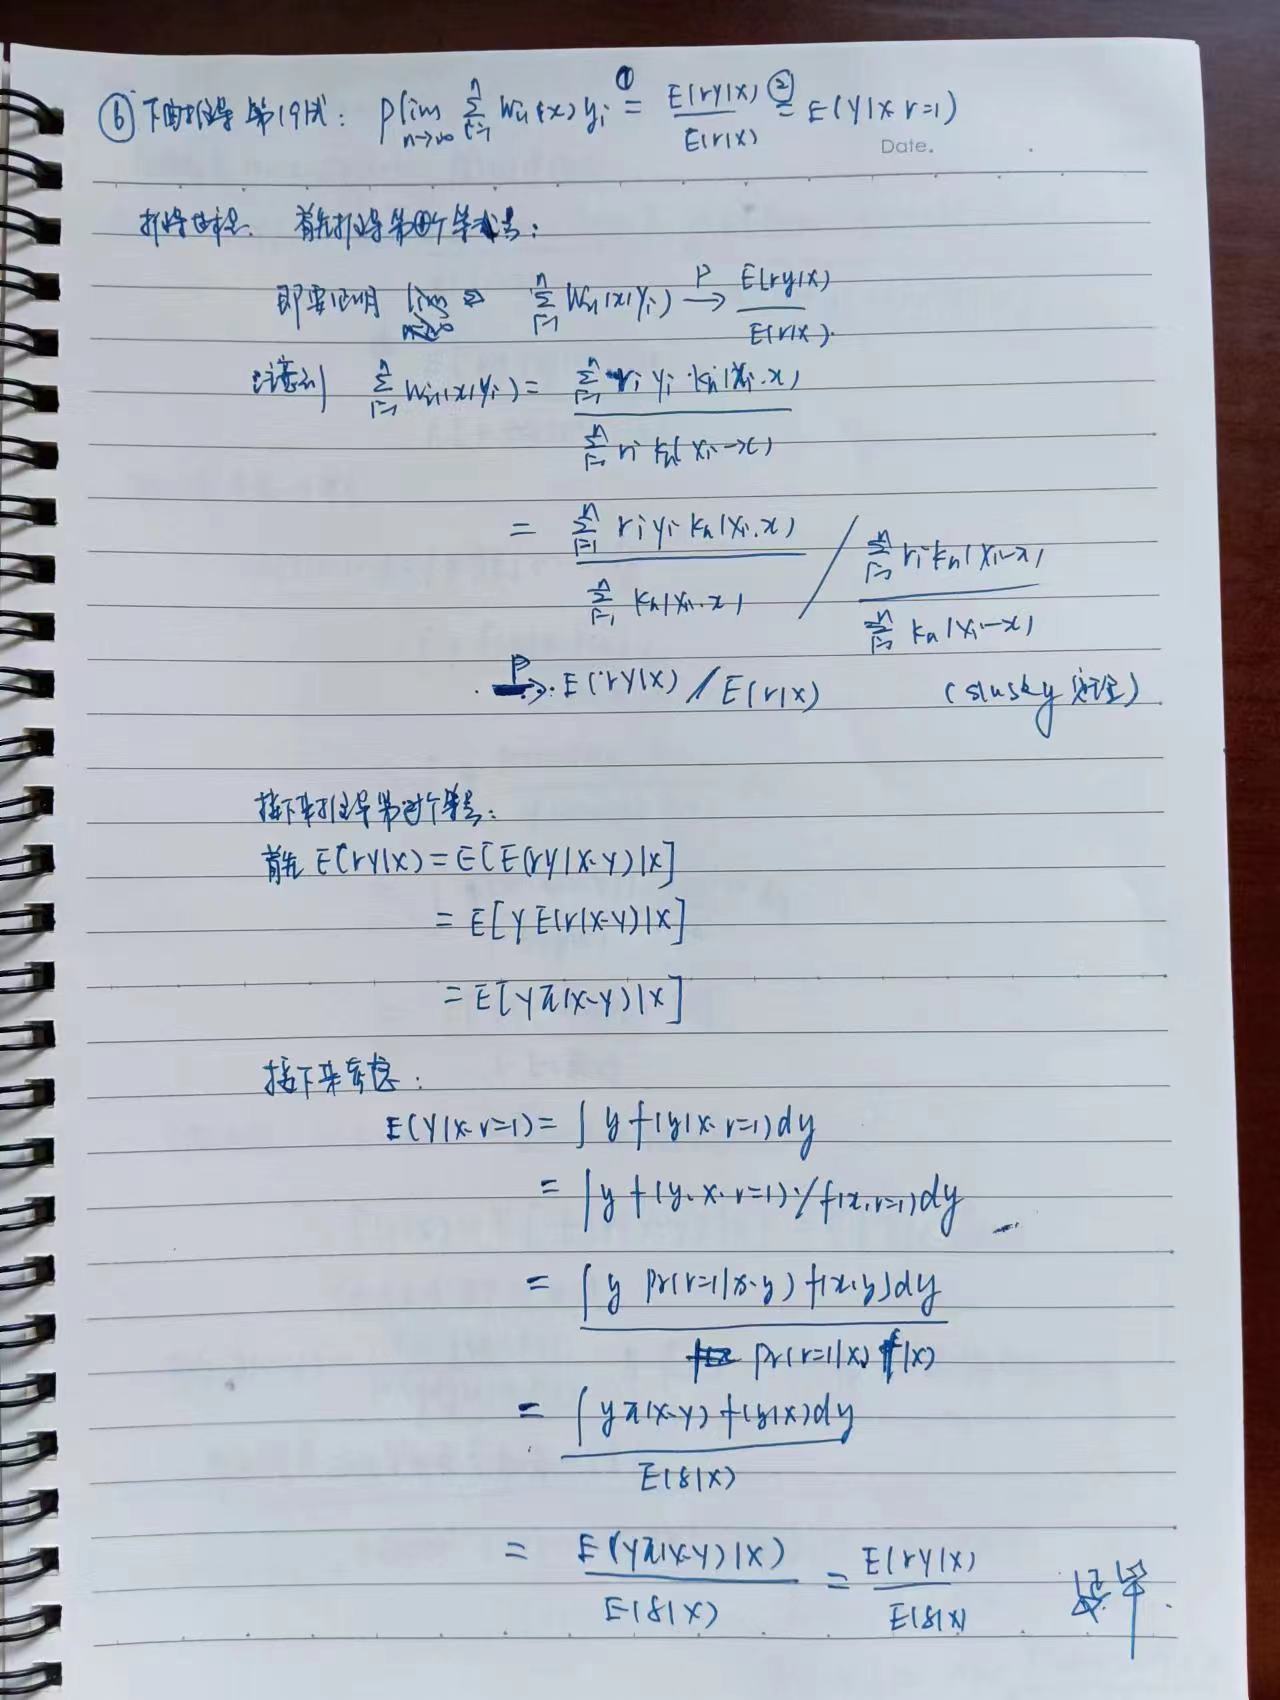 ⑥ 下面推导第19式: Plim_{n→∞} Σ_{i=1}^{n} W_{ni}(x) y_i ①= E(rY|X) / E(r|X) ②= E(Y|X, r=1)
Date.
首先推导第①个等号:
即要证明 Σ_{i=1}^{n} W_{ni}(x) y_i) →^P E(rY|X) / E(r|X).
注意到 Σ_{i=1}^{n} W_{ni}(x) y_i) = Σ_{i=1}^{n} r_i y_i K_h(X_i, x) / Σ_{i=1}^{n} r_i K_h(X_i-x)
= Σ_{i=1}^{n} r_i y_i K_h(X_i, x) / Σ_{i=1}^{n} K_h(X_i, x) / Σ_{i=1}^{n} r_i K_h(X_i-x) / Σ_{i=1}^{n} K_h(X_i-x)
→^P E(rY|X) / E(r|X) (slusky 定理)
接下来推导第②个等号:
首先 E(rY|X) = E[E(rY|X,Y)|X]
= E[Y E(r|X,Y)|X]
= E[Yπ(X,Y)|X]
接下来考虑:
E(Y|X, r=1) = ∫ y f(y|X, r=1) dy
= ∫ y f(y, x, r=1) / f(x, r=1) dy
= ∫ y Pr(r=1|x,y) f(x,y) dy / Pr(r=1|X) f(X)
= ∫ yπ(X,Y) f(y|X) dy / E(δ|X)
= E(Yπ(X,Y)|X) / E(δ|X) = E(rY|X) / E(δ|X) 证毕.